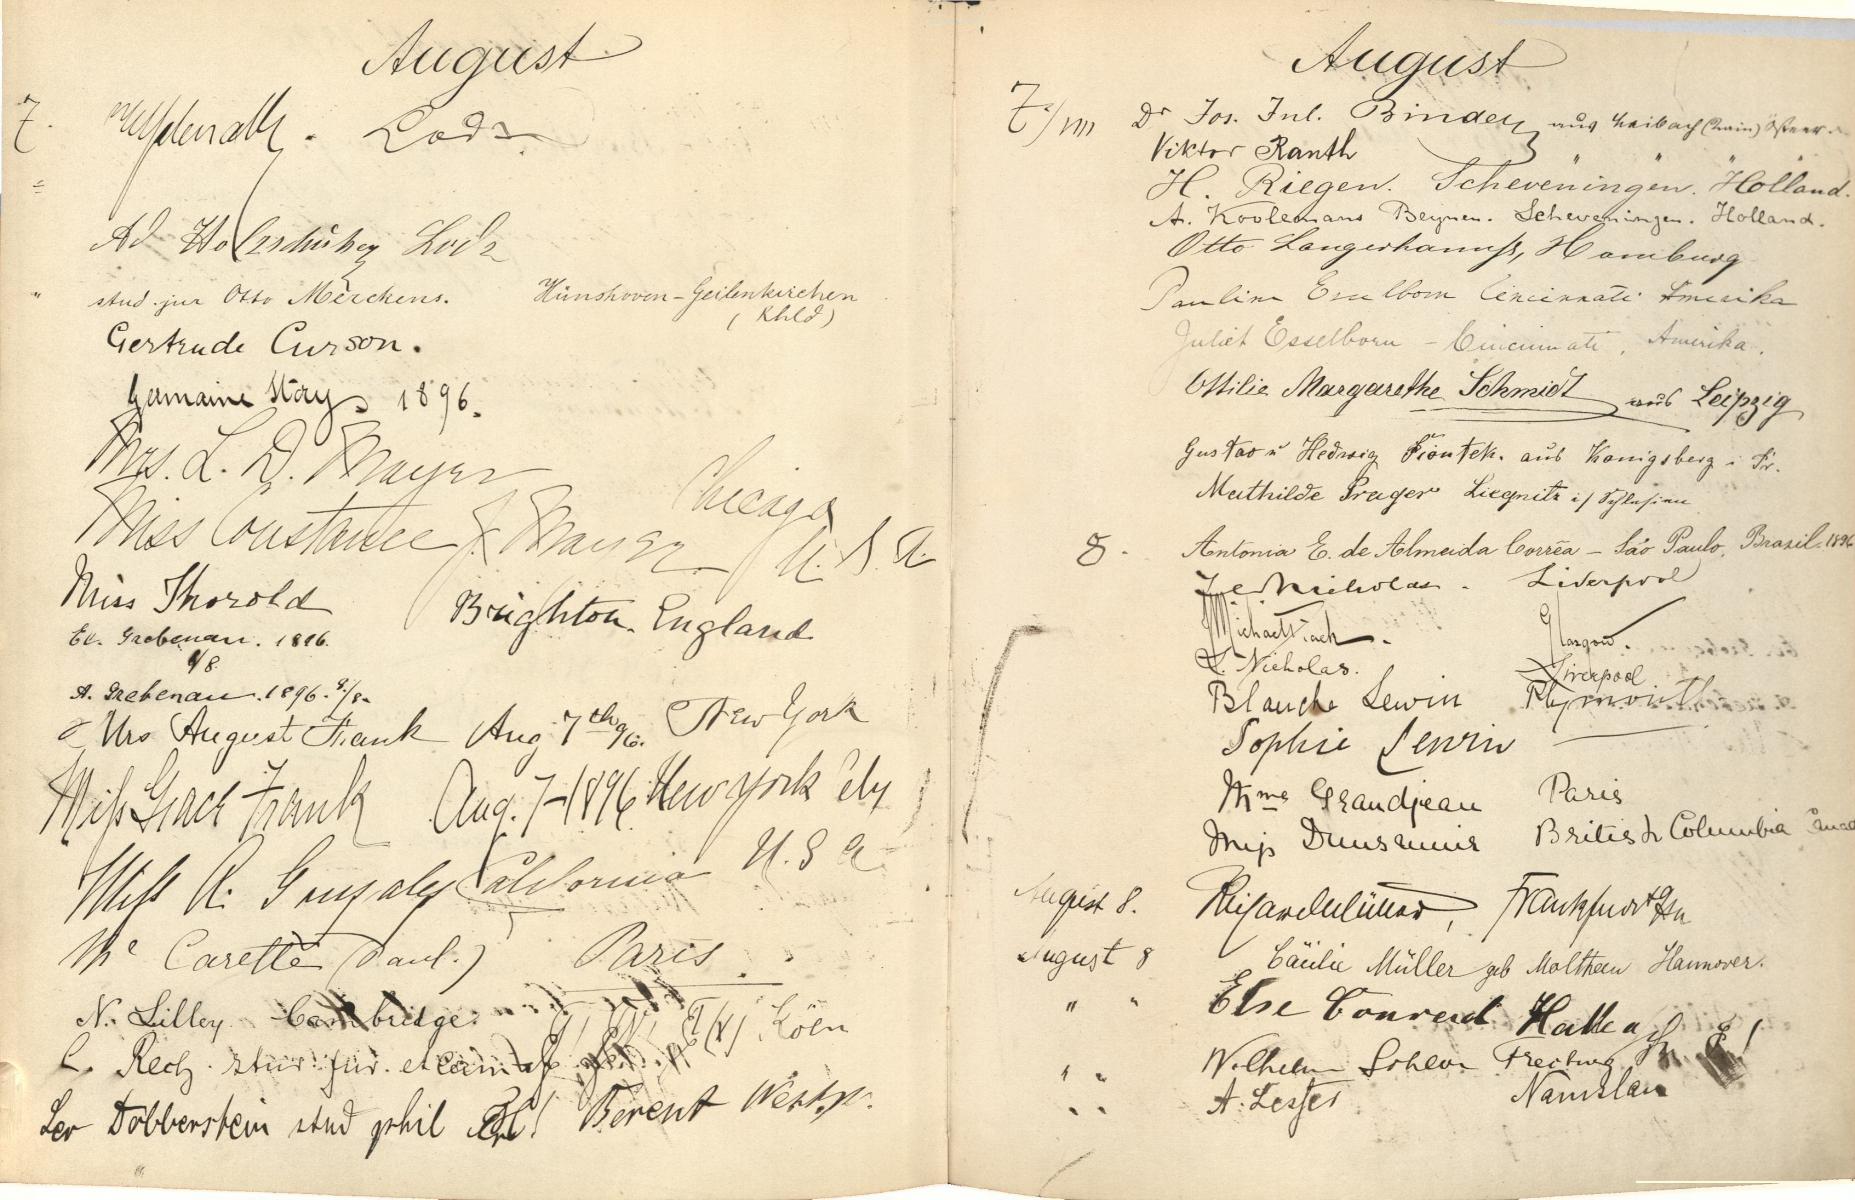 August
7. Lodz
Ad Holzschuher Lodz
" stud. jur Otto Merckens. Hünshoven-Geilenkirchen
(Rhld)
Gertrude Curson.
Germaine Story 1896.
Mrs. L. D. Mayer
Chicago
Miss Constance J. Mayer U. S. A.
Miss Thorold Brighton. England
Ed. Grebenau. 1896.
9/8.
A. Grebenau. 1896. 9./8.
Mrs August Frank Aug 7th 96. New York
Miss Grace Frank Aug. 7-1896 New York City
Miss R. Gonzales California U. S. A
Me Carette (Paul.) Paris
N. Lilley Cambridge.
C. Rech. stud. jur. et cam. Köln
Leo Dobberstein stud phil Berent Westpr.
August
7./VIII Dr Jos. Jul. Binder aus Laibach (Krain) Österr.
Viktor Ranth " " "
H. Riegen. Scheveningen. Holland.
A. Koolemans Beynen. Scheveningen. Holland.
Otto Langerhannss, Hamburg
Pauline Esselborn Cincinnati Amerika
Juliet Esselborn - Cincinnati, Amerika.
Ottilie Margarethe Schmidt aus Leipzig
Gustav u Hedwig Piontek. aus Königsberg i Pr.
Mathilde Prager Liegnitz i/ Schlesien
8. Antonia E. de Almeida Corrêa - São Paulo, Brasil. 1896
Nicholas. Liverpool
Michael Glasgow.
L. Nicholas. Liverpool
Blanche Lewin Plymouth
Sophie Lewin
Mme Grandjean Paris
Miss Dunsmuir British Columbia Canad
August 8. Frankfurt
August 8 Cäcilie Müller geb Molthan Hannover.
" " Else Conrad Halle a/
" " Wilhelm Freiburg
" " A. Lesser Namslau